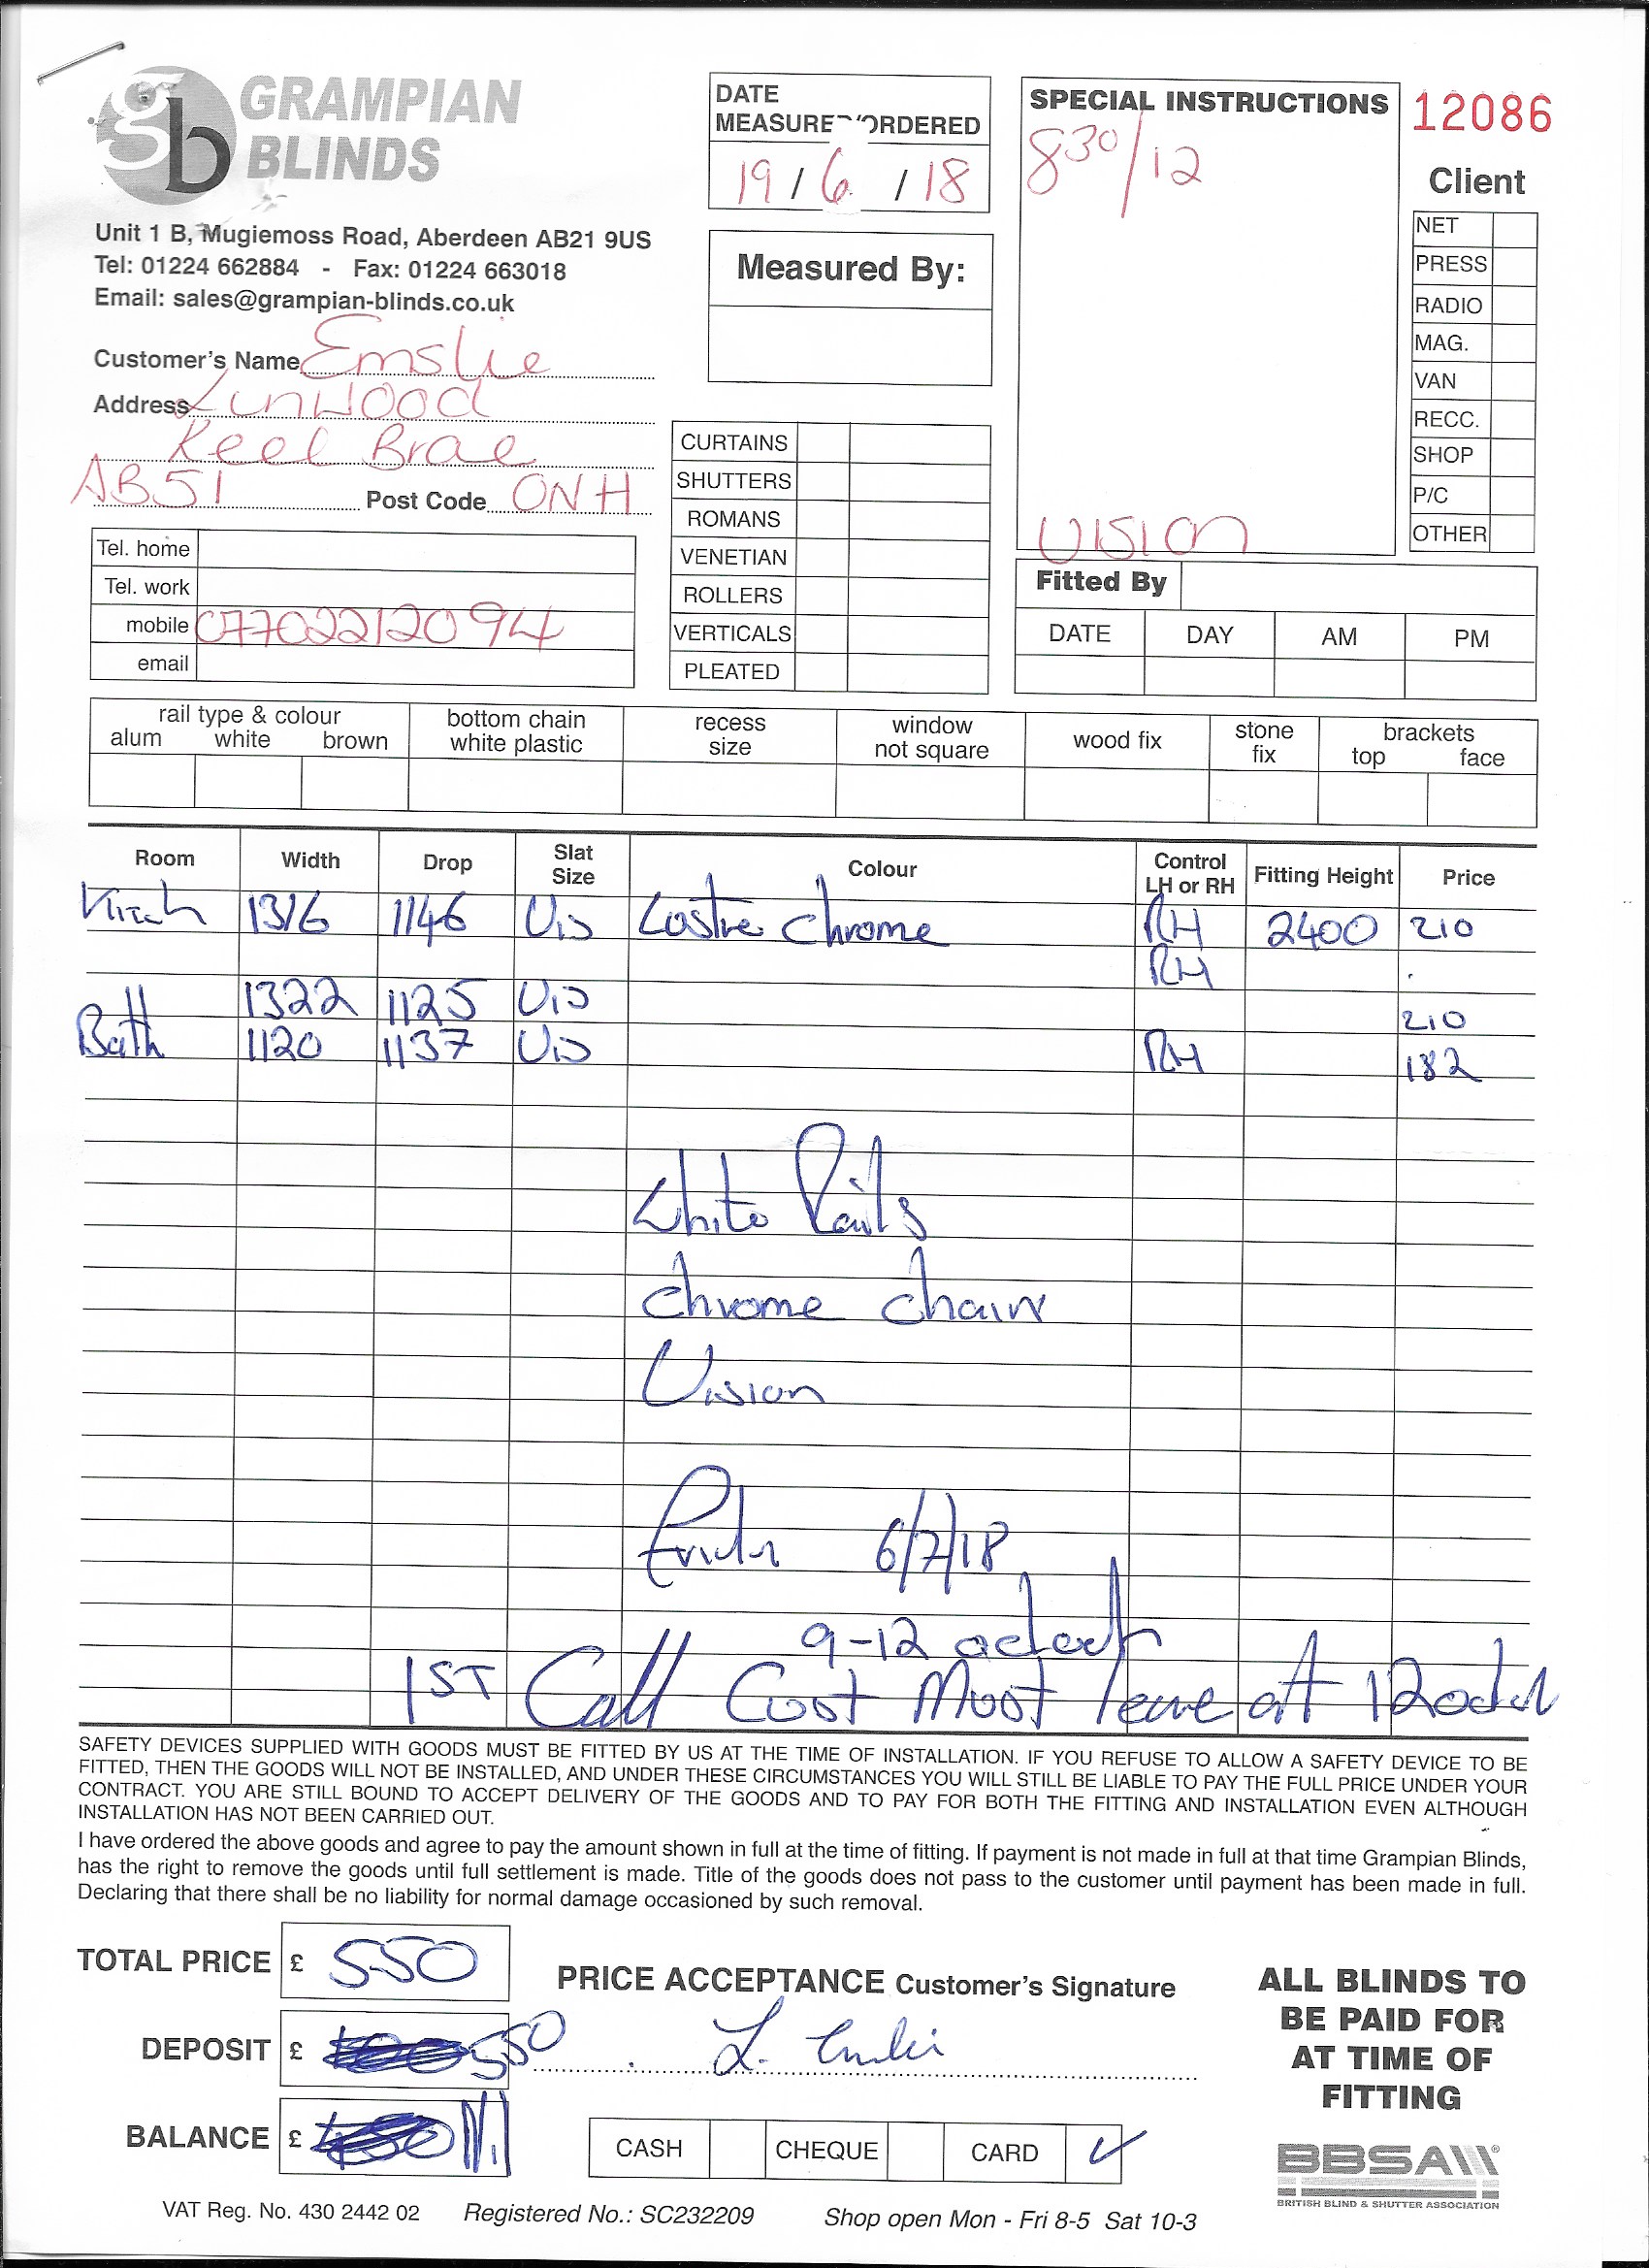 gb GRAMPIAN BLINDS
Unit 1 B, Mugiemoss Road, Aberdeen AB21 9US
Tel: 01224 662884 - Fax: 01224 663018
Email: sales@grampian-blinds.co.uk
DATE
MEASURE ORDERED
19 / 6 / 18
Measured By:
SPECIAL INSTRUCTIONS
8 30/12
VISION
12086
Client
NET
PRESS
RADIO
MAG.
VAN
RECC.
SHOP
P/C
OTHER
Customer's Name Emslie
Address Linwood
Keel Brae
AB51 Post Code 0NH
Tel. home
Tel. work
mobile 07702212094
email
CURTAINS
SHUTTERS
ROMANS
VENETIAN
ROLLERS
VERTICALS
PLEATED
Fitted By
DATE DAY AM PM
rail type & colour
alum white brown
bottom chain
white plastic
recess
size
window
not square
wood fix
stone
fix
brackets
top face
Room Width Drop Slat Size Colour Control LH or RH Fitting Height Price
1316 1146 Vis Lustre Chrome RH 2400 210
RH
1322 1125 Vis 210
Bath 1120 1137 Vis RH 182
White Rails
Chrome chain
Vision
6/7/18
9-12 oclock
1ST Call Cust Must leave at 12oclock
SAFETY DEVICES SUPPLIED WITH GOODS MUST BE FITTED BY US AT THE TIME OF INSTALLATION. IF YOU REFUSE TO ALLOW A SAFETY DEVICE TO BE
FITTED, THEN THE GOODS WILL NOT BE INSTALLED, AND UNDER THESE CIRCUMSTANCES YOU WILL STILL BE LIABLE TO PAY THE FULL PRICE UNDER YOUR
CONTRACT. YOU ARE STILL BOUND TO ACCEPT DELIVERY OF THE GOODS AND TO PAY FOR BOTH THE FITTING AND INSTALLATION EVEN ALTHOUGH
INSTALLATION HAS NOT BEEN CARRIED OUT.
I have ordered the above goods and agree to pay the amount shown in full at the time of fitting. If payment is not made in full at that time Grampian Blinds,
has the right to remove the goods until full settlement is made. Title of the goods does not pass to the customer until payment has been made in full.
Declaring that there shall be no liability for normal damage occasioned by such removal.
TOTAL PRICE £ 550
DEPOSIT £ 550
BALANCE £ Nil
PRICE ACCEPTANCE Customer's Signature
L. Emslie
CASH CHEQUE CARD ✓
ALL BLINDS TO
BE PAID FOR
AT TIME OF
FITTING
BBSA
BRITISH BLIND & SHUTTER ASSOCIATION
VAT Reg. No. 430 2442 02 Registered No.: SC232209 Shop open Mon - Fri 8-5 Sat 10-3